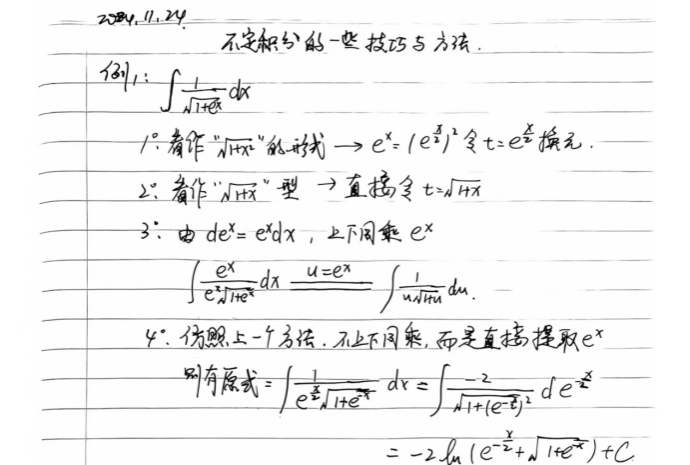 2024.11.24
不定积分的一些技巧与方法.
例1: ∫ 1/√(1+eˣ) dx
1°. 看作"√(1+x²)"的形式 → eˣ=(e^(x/2))² 令 t=e^(x/2) 换元.
2°. 看作"√(1+x)"型 → 直接令 t=√(1+x)
3°. 由 deˣ=eˣdx, 上下同乘 eˣ
∫ eˣ/(eˣ√(1+eˣ)) dx ══(u=eˣ)══ ∫ 1/(u√(1+u)) du.
4°. 仿照上一个方法. 不上下同乘, 而是直接提取 eˣ
则有原式=∫ 1/(e^(x/2)√(1+e^(-x))) dx = ∫ -2/√(1+(e^(-x/2))²) d e^(-x/2)
= -2ln(e^(-x/2)+√(1+e^(-x)))+C